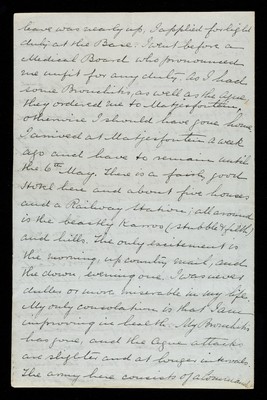 leave was nearly up, I applied for light
duty at the Base. I went before a
Medical Board who pronounced
me unfit for any duty. As I had
some Bronchitis, as well as the Ague,
they ordered me to Matjesfontein,
otherwise I should have gone home.
I arrived at Matjesfontein a week
ago and have to remain until
the 6th May. There is a fairly good
Hotel here and about five houses
and a Railway Station; all around
is the beastly Karroo, (stubble & filth)
and hills. The only excitement is
the morning, up country mail, and
the down evening one. I was never
duller or more miserable in my life.
My only consolation is that I am
improving in health. My Bronchitis
has gone, and the Ague attacks
are slighter and at longer intervals.
The army here consists of a Command